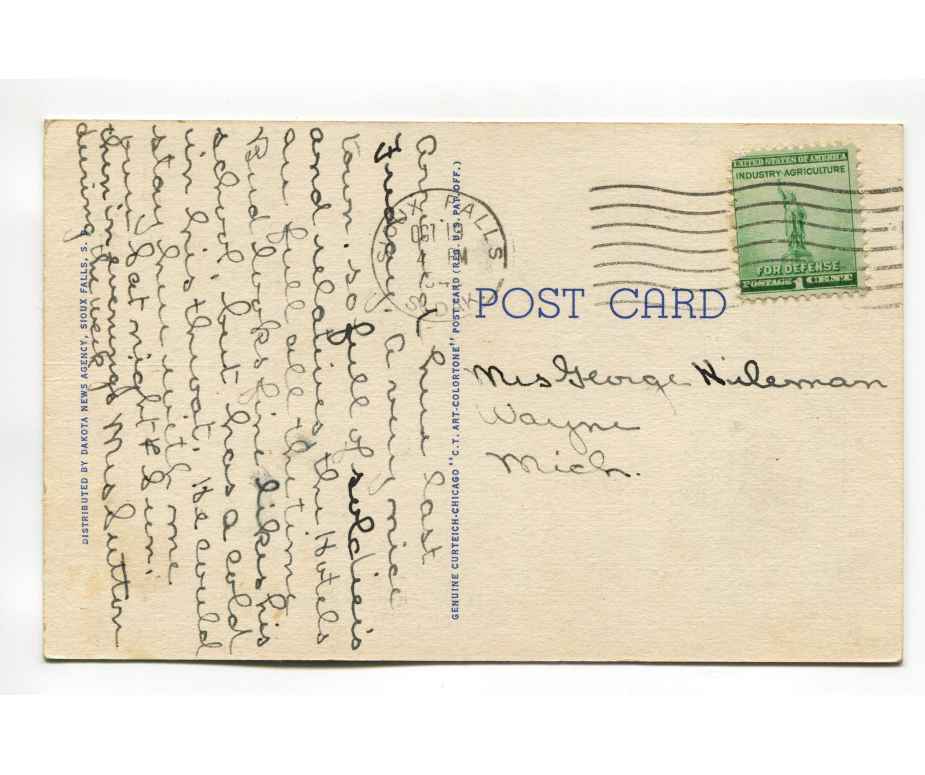 Arrived here last
Friday. A very nice
town so full of soldiers
and relatives the Hotels
are full all the time
Bud looks fine likes his
school, but has a cold
in his throat. He could
stay here with me
Sat night & Sun.
the evenings Mrs Sutton
during the week
SIOUX FALLS
OCT 19
PM
S. DAK.
UNITED STATES OF AMERICA
INDUSTRY AGRICULTURE
FOR DEFENSE
POSTAGE 1 CENT
POST CARD
Mrs George Hileman
Wayne
Mich.
DISTRIBUTED BY DAKOTA NEWS AGENCY, SIOUX FALLS, S.
GENUINE CURTEICH-CHICAGO "C.T. ART-COLORTONE" POST CARD (REG. U.S. PAT. OFF.)